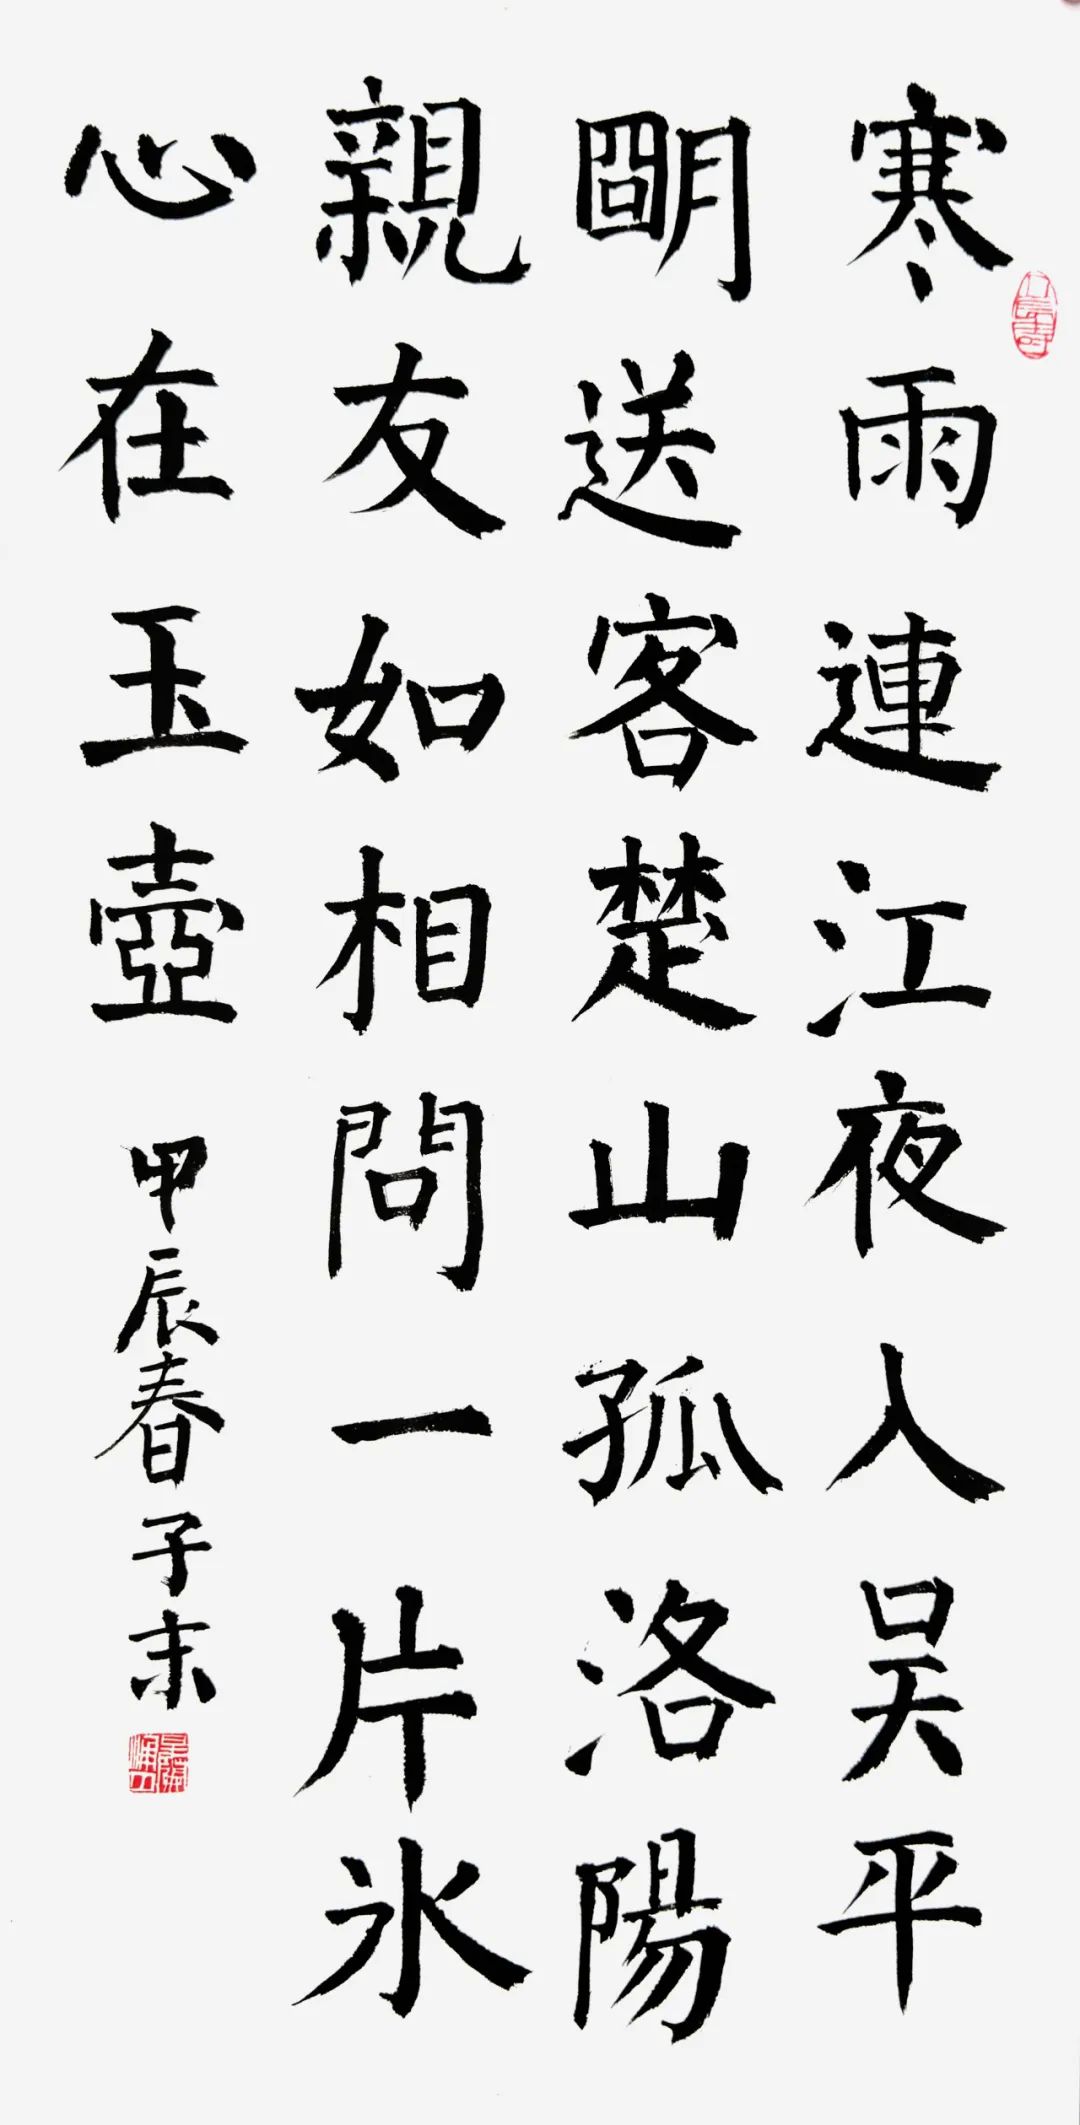 寒雨連江夜入吴平
朙送客楚山孤洛陽
親友如相問一片氷
心在玉壺
甲辰春子